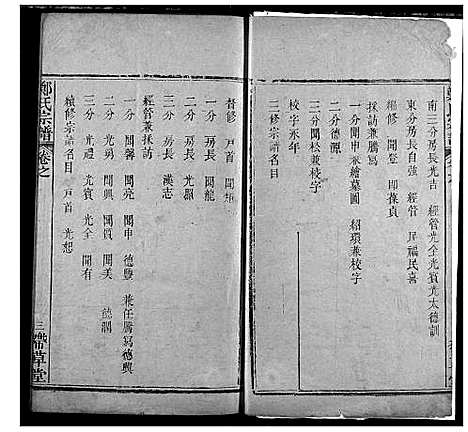 南三分房長光吉 經管光全光賓光太德訓
東分房長自強 經管 民福民喜
繼修 開登 即葆貞
採訪兼騰寫
一分開申兼繪墓圖 紹環兼校字
二分德源
三分開松兼校字
校字永年
三修宗譜名目
鄭氏宗譜
卷之
督修 戸首 開
一分 房長 開龍
二分 房長 光顯
三分 房長 漢志
經管兼採訪
一分 開馨 開亮 開申 德豐 兼任騰寫德興
二分 光勇 開興 開質 開美 德潤
三分 光禮 光賓 光全 開有
續修宗譜名目 戸首 光恕
三
帶草堂